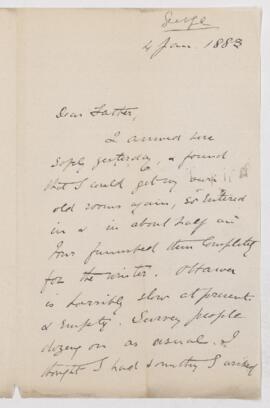 4 Jan. 1883
Dear Father,
I arrived here
safely yesterday, & found
that I could get my
old rooms again, so entered
in & in about half an
hour furnished them completely
for the winter. Ottawa
is horribly slow at present
& empty. Survey people
dozing on as usual. I
thought I had something I wished